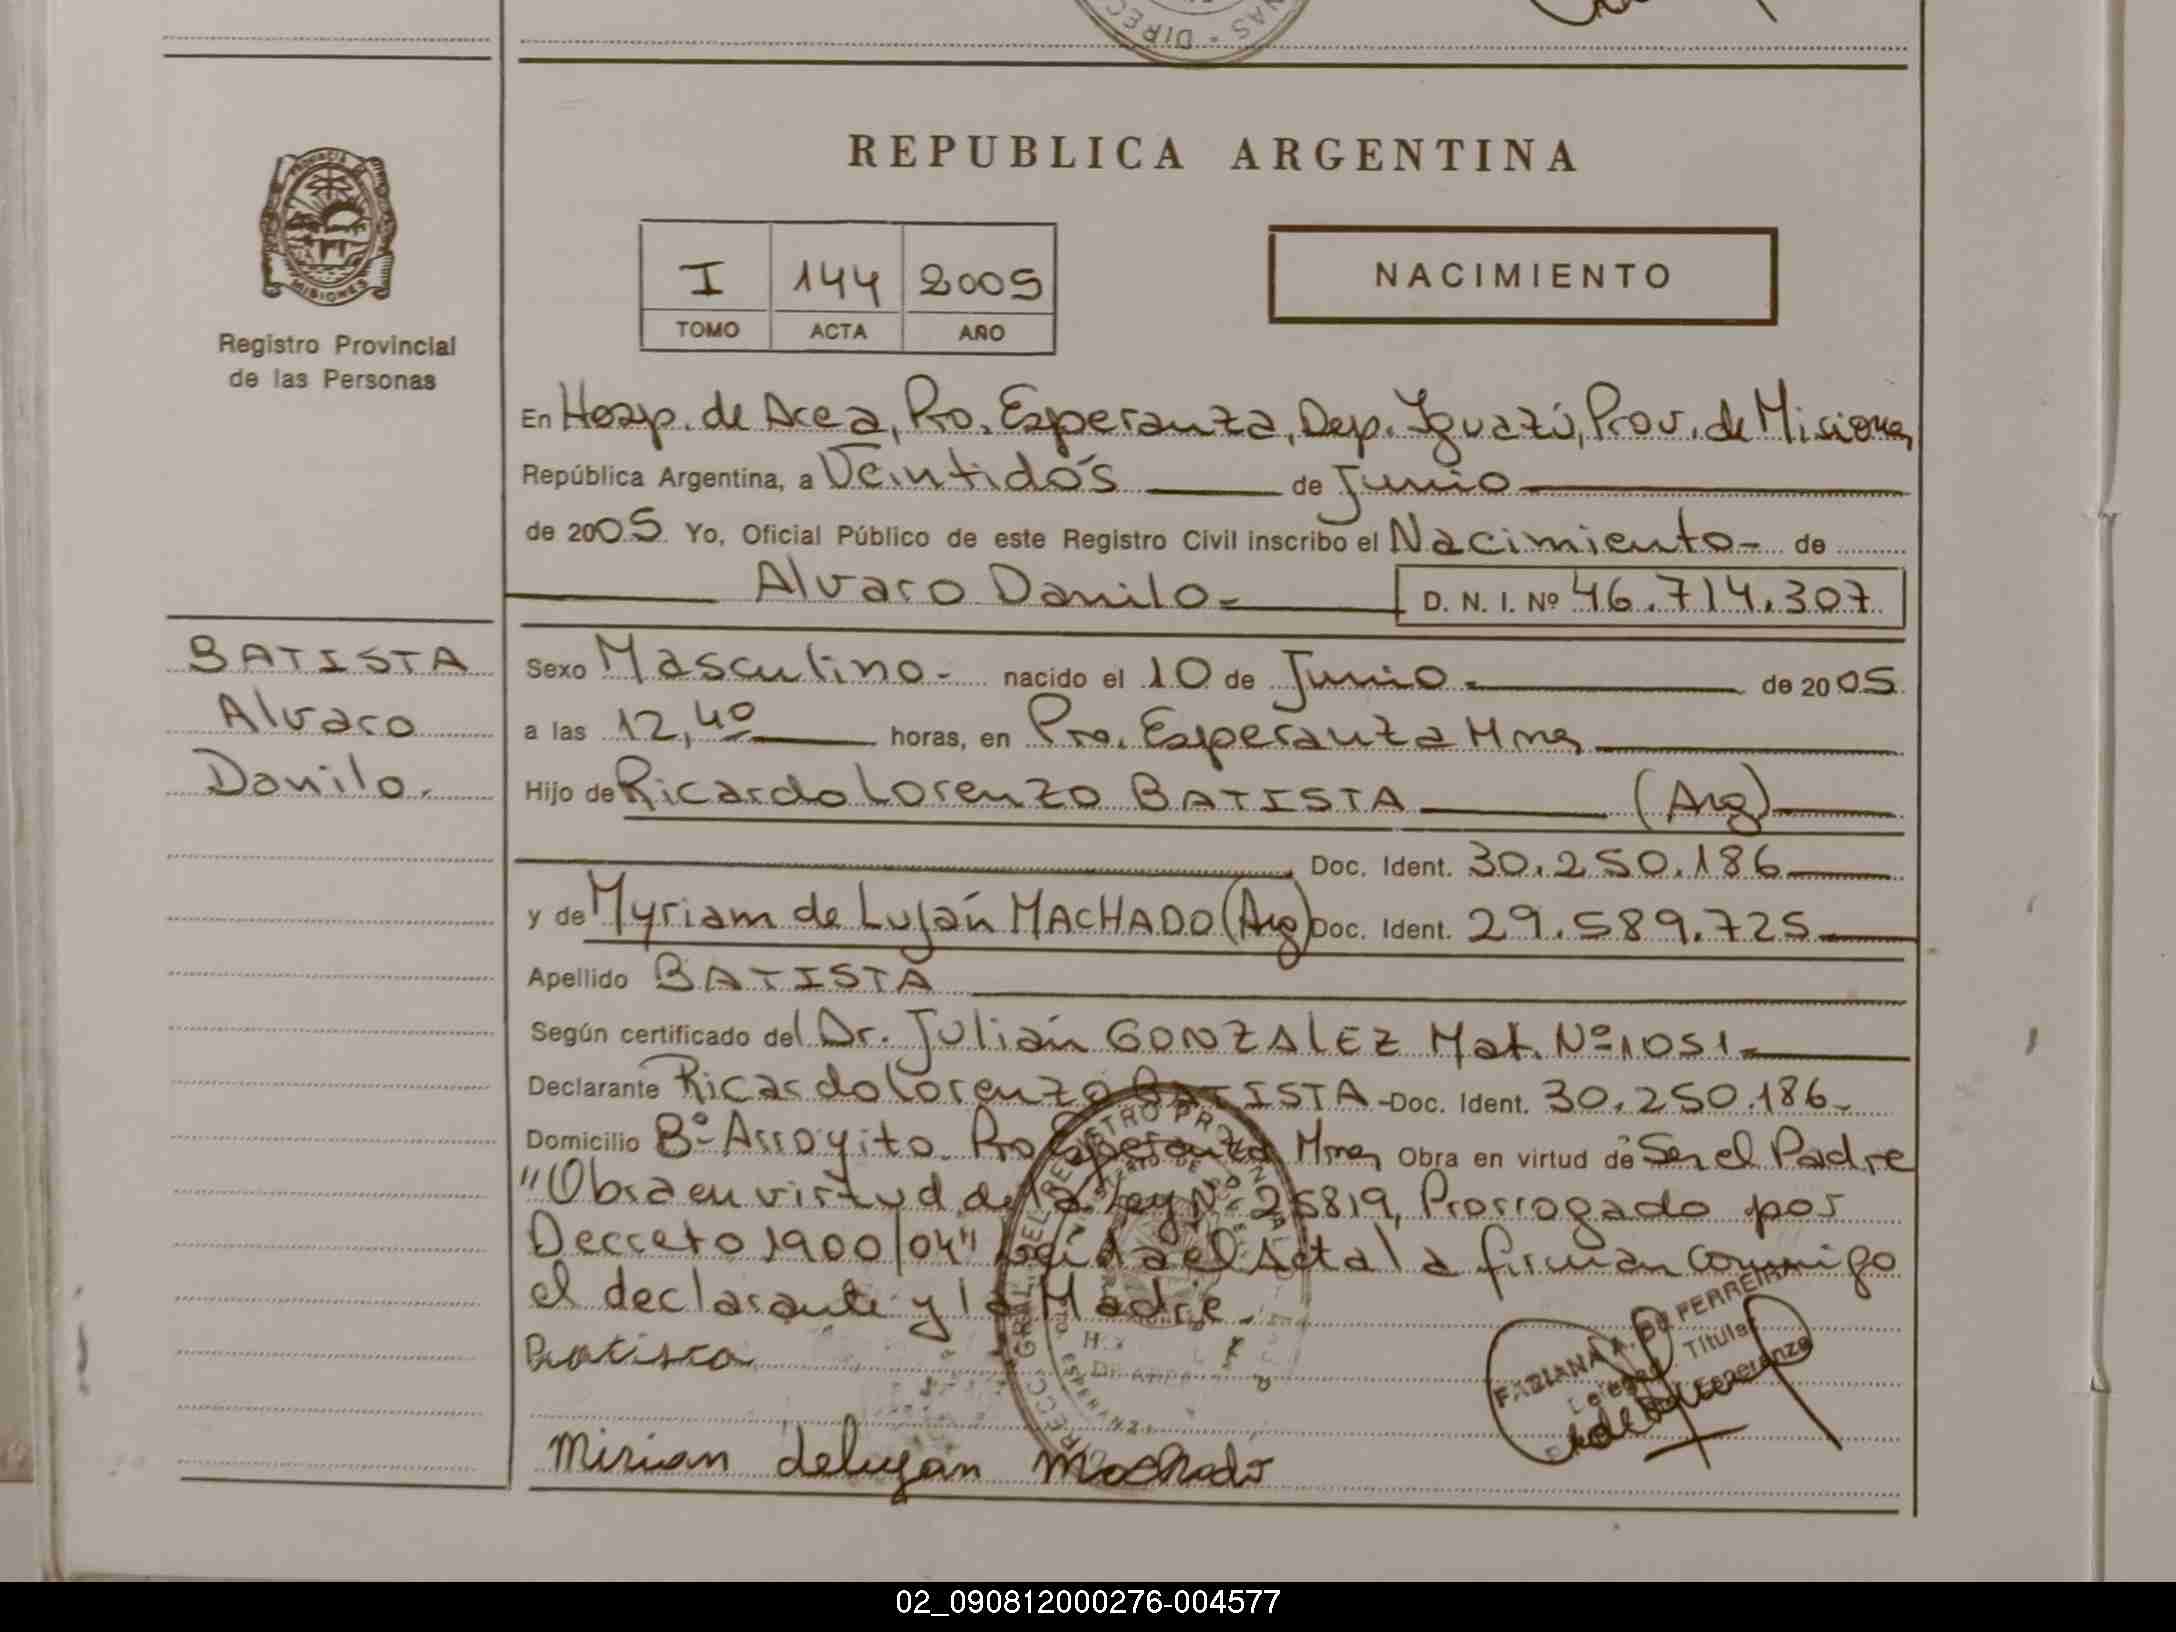 REPUBLICA ARGENTINA
PROVINCIA DE
MISIONES
Registro Provincial
de las Personas
I 144 2005
TOMO ACTA AÑO
NACIMIENTO
En Hosp. de Area, Pto. Esperanza, Dep. Iguazú, Prov. de Misiones
República Argentina, a Veintidós de Junio
de 2005 Yo, Oficial Público de este Registro Civil inscribo el Nacimiento - de
Alvaro Danilo - D. N. I. Nº 46.714.307
BATISTA
Alvaro
Danilo.
Sexo Masculino - nacido el 10 de Junio - de 2005
a las 12,40 horas, en Pto. Esperanza Mnes
Hijo de Ricardo Lorenzo BATISTA (Arg)
Doc. Ident. 30.250.186
y de Myriam de Luján MACHADO (Arg) Doc. Ident. 29.589.725
Apellido BATISTA
Según certificado del Dr. Julián GONZALEZ Mat. Nº 1051 -
Declarante Ricardo Lorenzo BATISTA - Doc. Ident. 30.250.186 -
Domicilio Bº Arroyito. Pto Esperanza Mnes Obra en virtud de Ser el Padre
"Obra en virtud de la Ley Nº 25819, Prorrogado por
Decreto 1900/04" Leída el Acta la firman conmigo
el declarante y la Madre.
Batista
FABIANA A. DE FERREIRA
Titular
Esperanza
Mirian delujan Machado
02_090812000276-004577